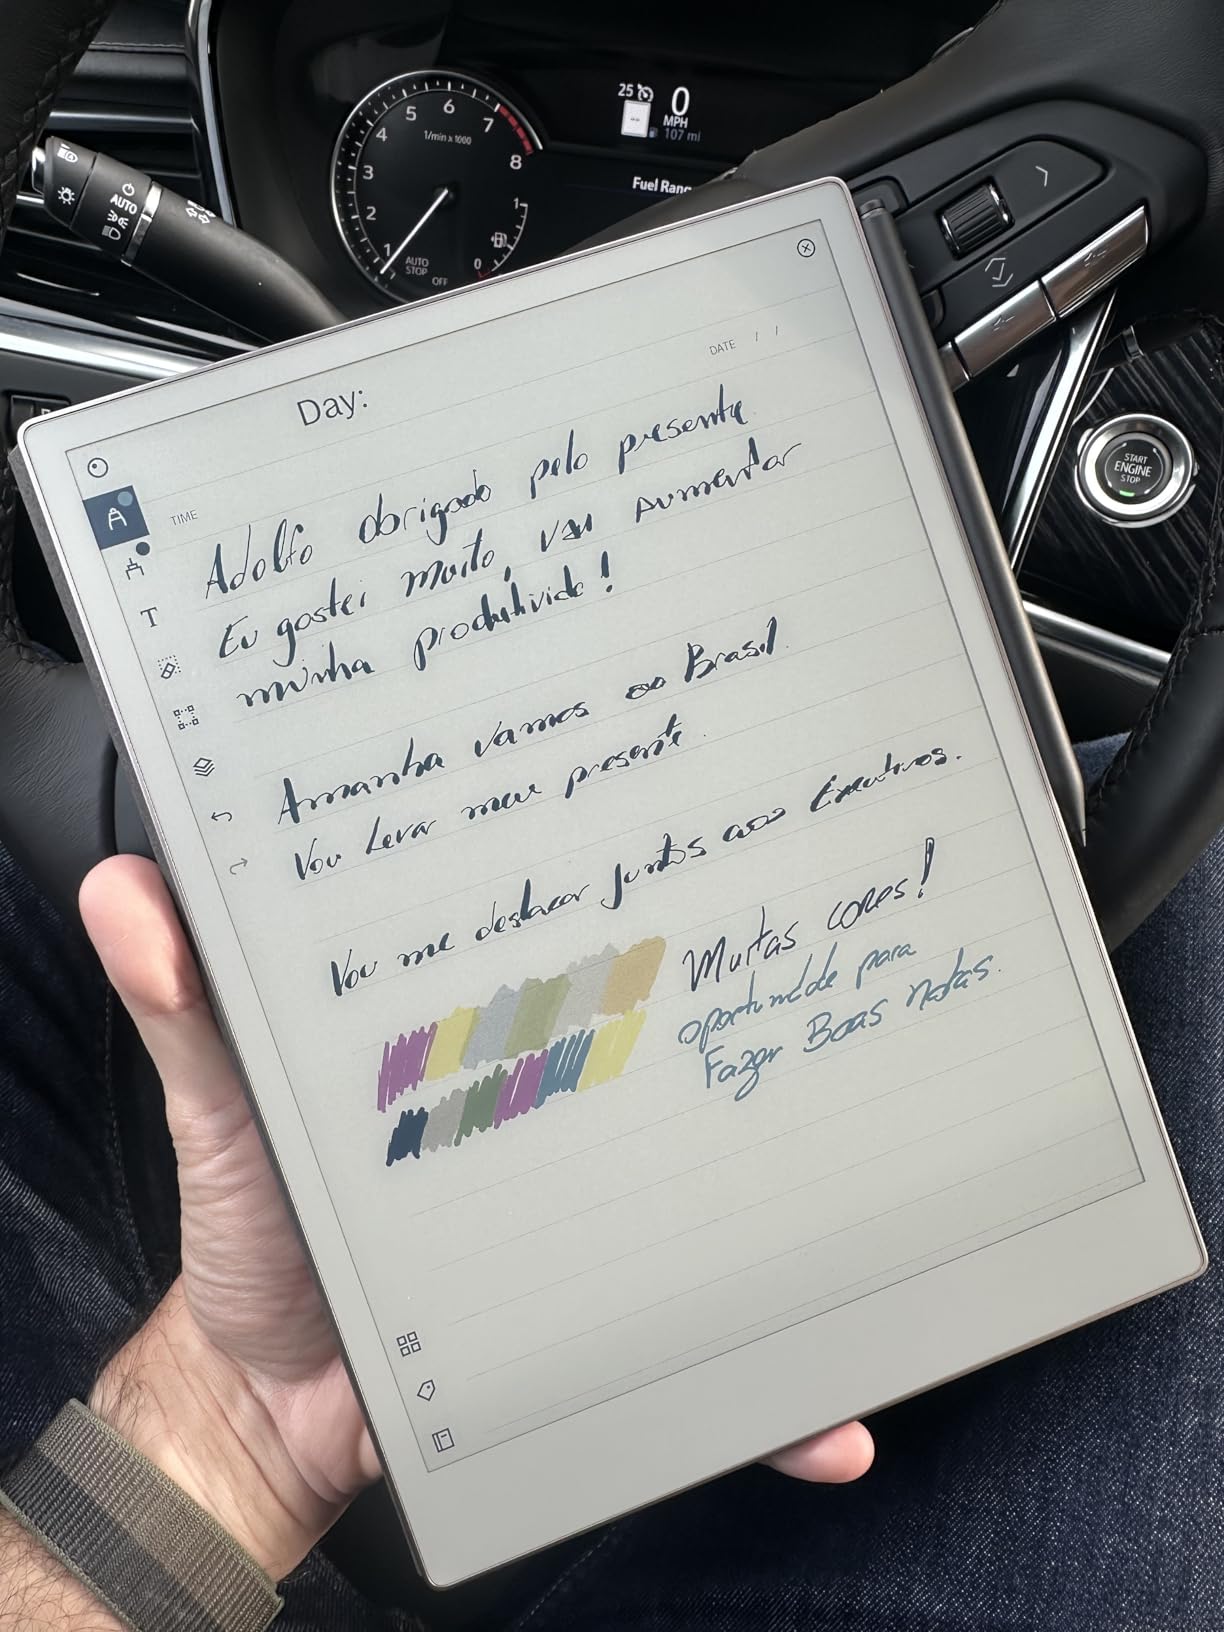 25
0
MPH
107 mi
Fuel Rang
1/min x 1000
1
2
3
4
5
6
7
8
AUTO
STOP
OFF
0
1
AUTO
START
ENGINE
STOP
Day:
DATE / /
TIME
A
T
Adolfo obrigado pelo presente
Eu gostei muito, vai aumentar
minha produtivide!
Amanha vamos ao Brasil.
Vou levar meu presente.
Vou me destacar juntos aos Executivos.
Muitas cores!
oportunidade para
Fazer Boas notas.